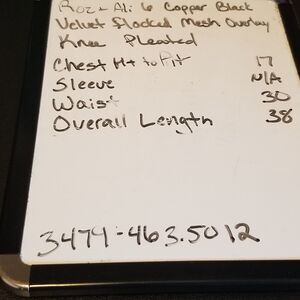 Roz + Ali 6 Copper Black
Velvet Flocked Mesh Overlay
Knee Pleated
Chest H+ to Pit 17
Sleeve N/A
Waist 30
Overall Length 38
3474-463.5012